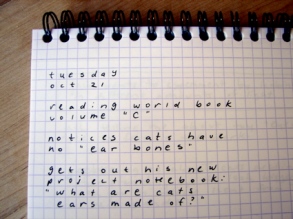 tuesday
oct 21
reading world book
volume "C"
notices cats have
no "ear bones"
gets out his new
project notebook:
"what are cats
ears made of?"